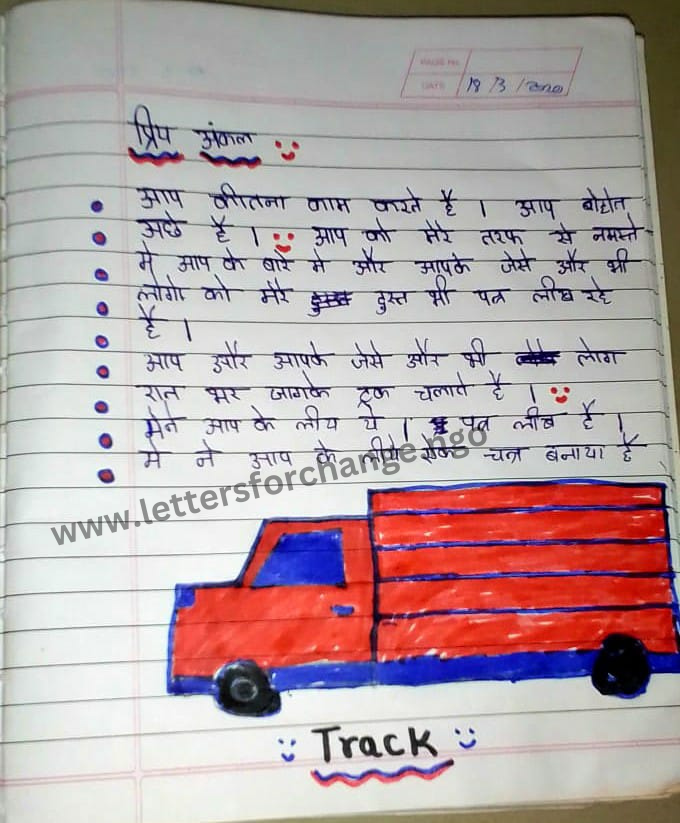 PAGE NO.
DATE 18/3/2020
प्रिय अंकल
आप कीतना काम करते है । आप बोहोत
अछे है । आप को मेरे तरफ से नमस्ते
मे आप के बारे मे और आपके जेसे और भी
लोगो को मेरे दुस्त भी पत्र लीख रहे
है ।
आप और आपके जेसे और भी लोग
रात भर जागके ट्रक चलाते है ।
मेने आप के लीय ये । पत्र लीख है ।
मे ने आप के लीये ऐक चत्र बनाया है
www.lettersforchange.ngo
Track